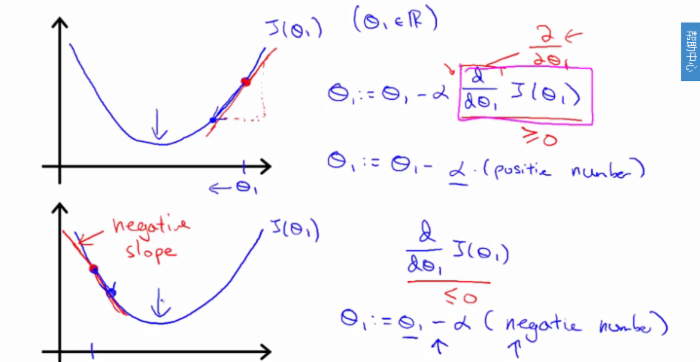 J(θ₁) (θ₁ ∈ ℝ)
∂/∂θ₁
θ₁ := θ₁ - α d/dθ₁ J(θ₁)
≥ 0
θ₁ := θ₁ - α · (positie number)
θ₁
negative slope
J(θ₁)
d/dθ₁ J(θ₁)
≤ 0
θ₁ := θ₁ - α (negatie number)
帮助中心